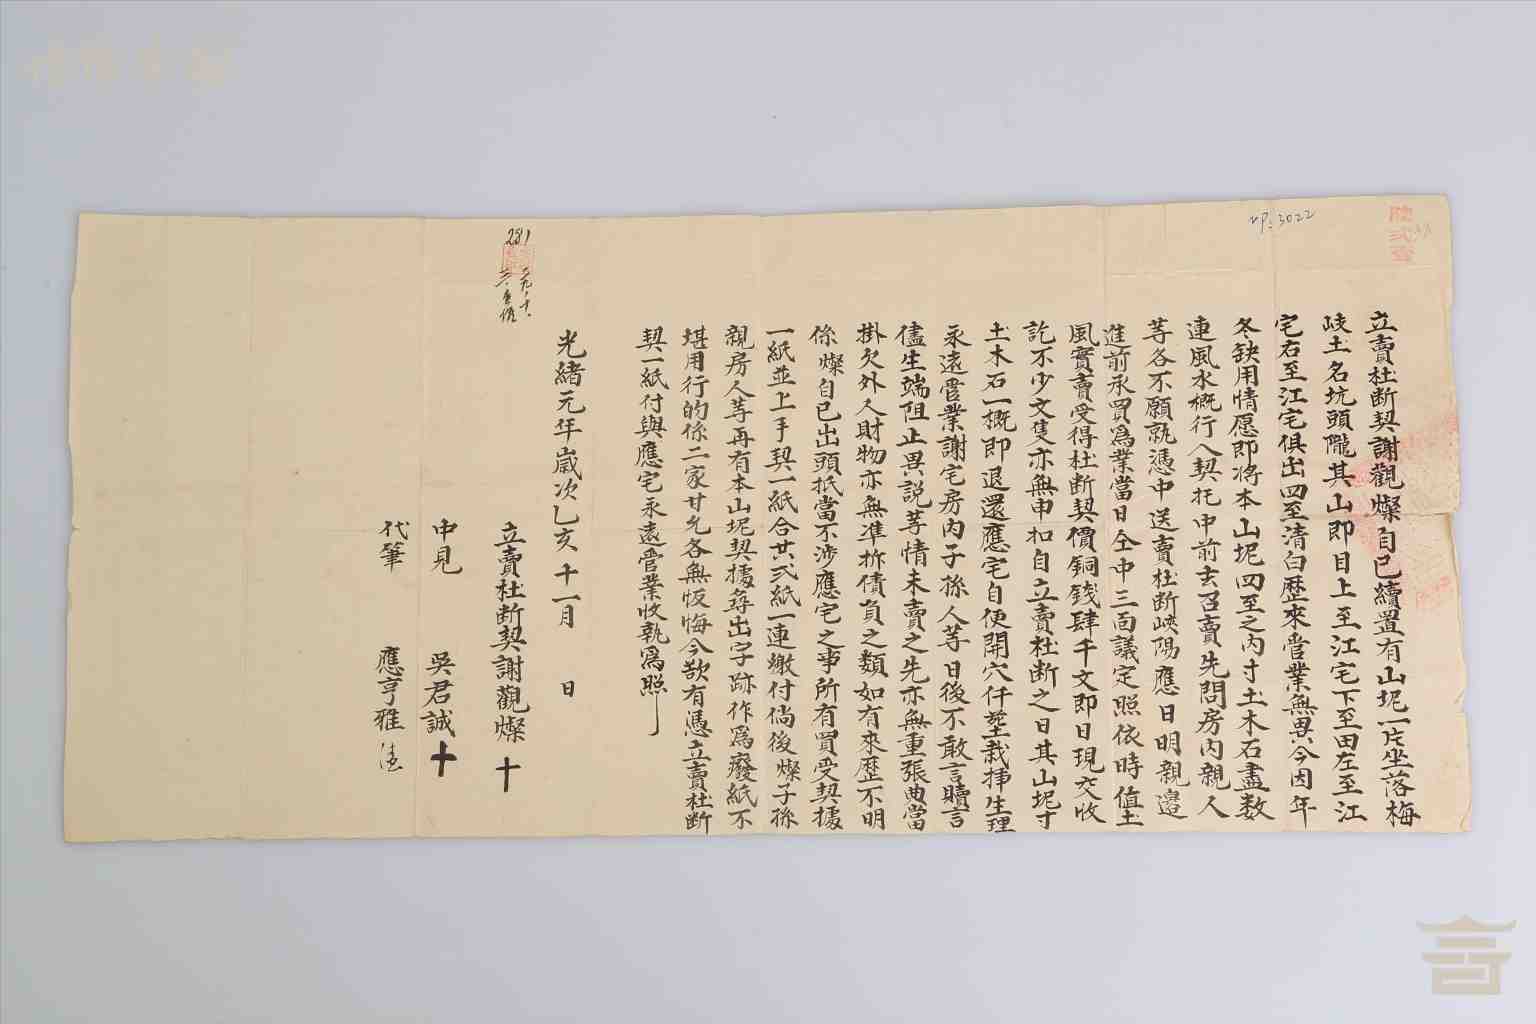 立賣杜断契謝觀燦自己續置有山坭一片坐落梅
岐土名坑頭隴其山即目上至江宅下至田左至江
宅右至江宅俱出四至清白歷來管業無異今因年
冬缺用情愿即将本山坭四至之内寸土木石盡数
連風水概行入契托中前去召賣先問房内親人
等各不願就憑中送賣杜断峡陽應日明親邊
進前承買為業當日仝中三面議定照依時值土
風實賣受得杜断契價銅錢肆千文即日現交收
訖不少文隻亦無申扣自立賣杜断之日其山坭寸
土木石一概即退還應宅自便開穴仟塟栽插生理
永遠管業謝宅房内子孫人等日後不敢言贖言
儘生端阻止異説等情未賣之先亦無重張典當
掛欠外人財物亦無準折債負之類如有來歷不明
係燦自己出頭抵當不涉應宅之事所有買受契據
一紙並上手契一紙合共弍紙一連繳付倘後燦子孫
親房人等再有本山坭契據尋出字跡作為廢紙不
堪用行的係二家甘允各無恢悔今欲有憑立賣杜断
契一紙付與應宅永遠管業收執為照
光緒元年歲次乙亥十一月 日
立賣杜断契謝觀燦 十
中見 吳君誠 十
代筆 應亨雅
281
3022